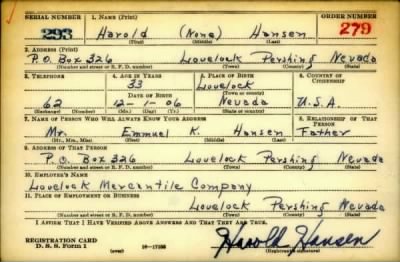 SERIAL NUMBER 1. NAME (Print) ORDER NUMBER
293 Harold (None) Hansen 279
(First) (Middle) (Last)
2. ADDRESS (Print)
P.O. Box 326 Lovelock Pershing Nevada
(Number and street or R. F. D. number) (Town) (County) (State)
3. TELEPHONE 4. AGE IN YEARS 5. PLACE OF BIRTH 6. COUNTRY OF CITIZENSHIP
33 Lovelock
DATE OF BIRTH (Town or county)
62 12-1-06 Nevada U.S.A.
(Exchange) (Number) (Mo.) (Day) (Yr.) (State or country)
7. NAME OF PERSON WHO WILL ALWAYS KNOW YOUR ADDRESS 8. RELATIONSHIP OF THAT PERSON
Mr. Emmuel K. Hansen Father
(Mr., Mrs., Miss) (First) (Middle) (Last)
9. ADDRESS OF THAT PERSON
P.O. Box 326 Lovelock Pershing Nevada
(Number and street or R. F. D. number) (Town) (County) (State)
10. EMPLOYER'S NAME
Lovelock Mercantile Company
11. PLACE OF EMPLOYMENT OR BUSINESS
Lovelock Pershing Nevada
(Number and street or R. F. D. number) (Town) (County) (State)
I AFFIRM THAT I HAVE VERIFIED ABOVE ANSWERS AND THAT THEY ARE TRUE.
REGISTRATION CARD
D. S. S. Form 1 (over) 16-17105 Harold Hansen
(Registrant's signature)